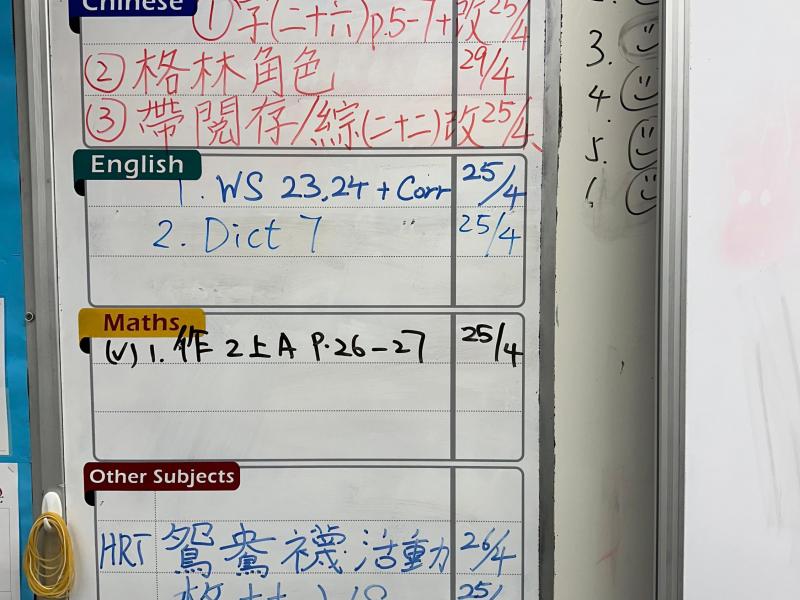 Chinese
① 字(二十六)p.5-7+改 25/4
② 格林角色 29/4
③ 帶閱存/綜(二十二)改 25/4
English
1. WS 23,24 + Corr 25/4
2. Dict 7 " 25/4
Maths
(√) 1. 作 2上A P.26-27 25/4
Other Subjects
HRT 鴛鴦襪活動 26/4
25/
3.
4.
5.